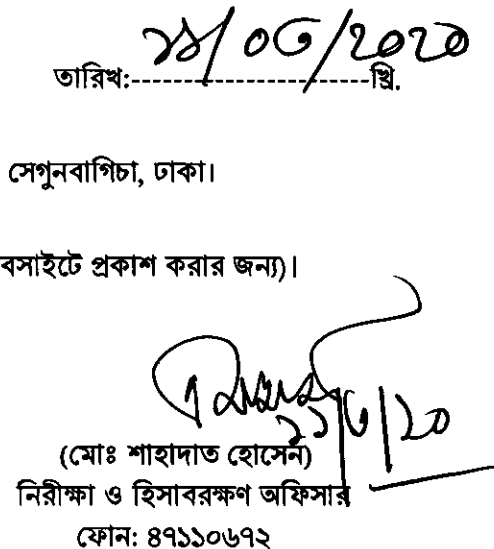 তারিখ:-------------------------খ্রি.
সেগুনবাগিচা, ঢাকা।
বসাইটে প্রকাশ করার জন্য)।
(মোঃ শাহাদাত হোসেন)
নিরীক্ষা ও হিসাবরক্ষণ অফিসার
ফোন: ৪৭১১০৬৭২